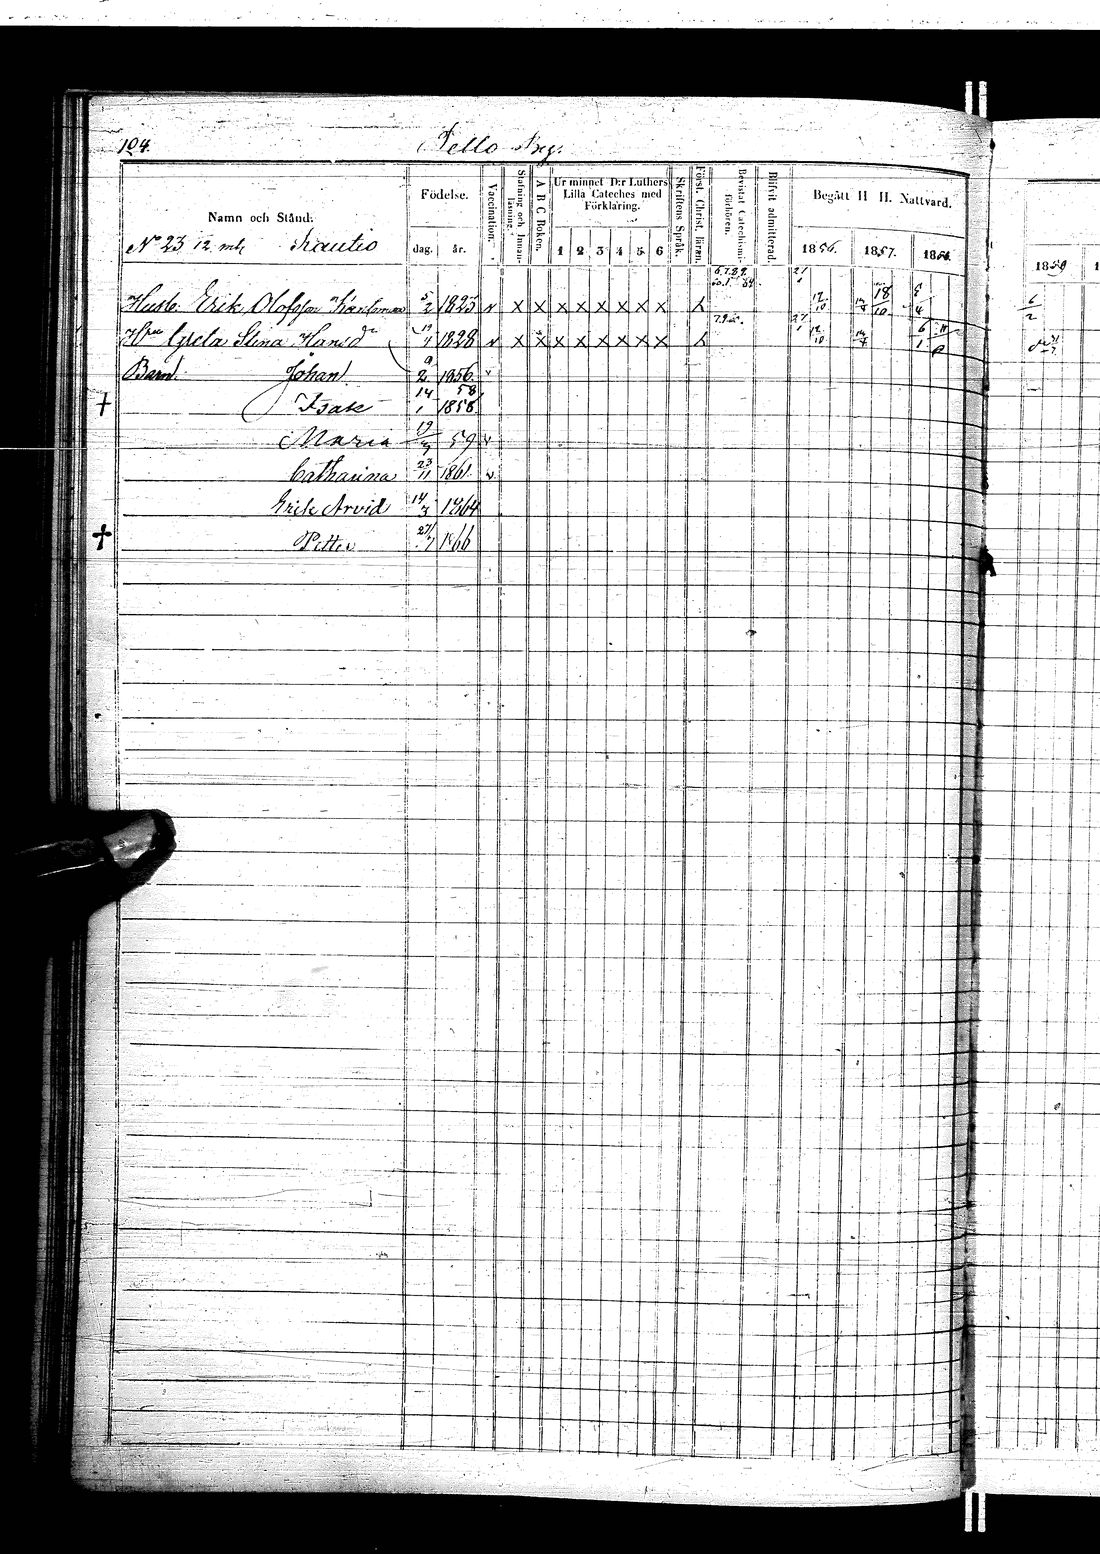 104.
Pello By.
Namn och Stånd:
Födelse.
dag.
år.
Vaccination.
Stafning och Innan-läsning.
A B C Boken.
Ur minnet D:r Luthers Lilla Cateches med Förklaring.
1 2 3 4 5 6
Skriftens Språk.
Först. Christ. läran.
Bevistat Catechismi-förhören.
Blifvit admitterad.
Begått H H. Nattvard.
1856.
1857.
1858.
1859
No 23 1/12 mtl Kautio
Husb. Erik Olofsson 5/2 1823 v x x x x x x x x
Greta Stina Hansd 1828 v x x x x x x x x
Barn. Johan 9/2 1856. v
Isak 14/1 1858 58
Maria 19 59 v
Catharina 23/11 1861 v
Erik Arvid 14/3 1864
Petter 27/7 1866